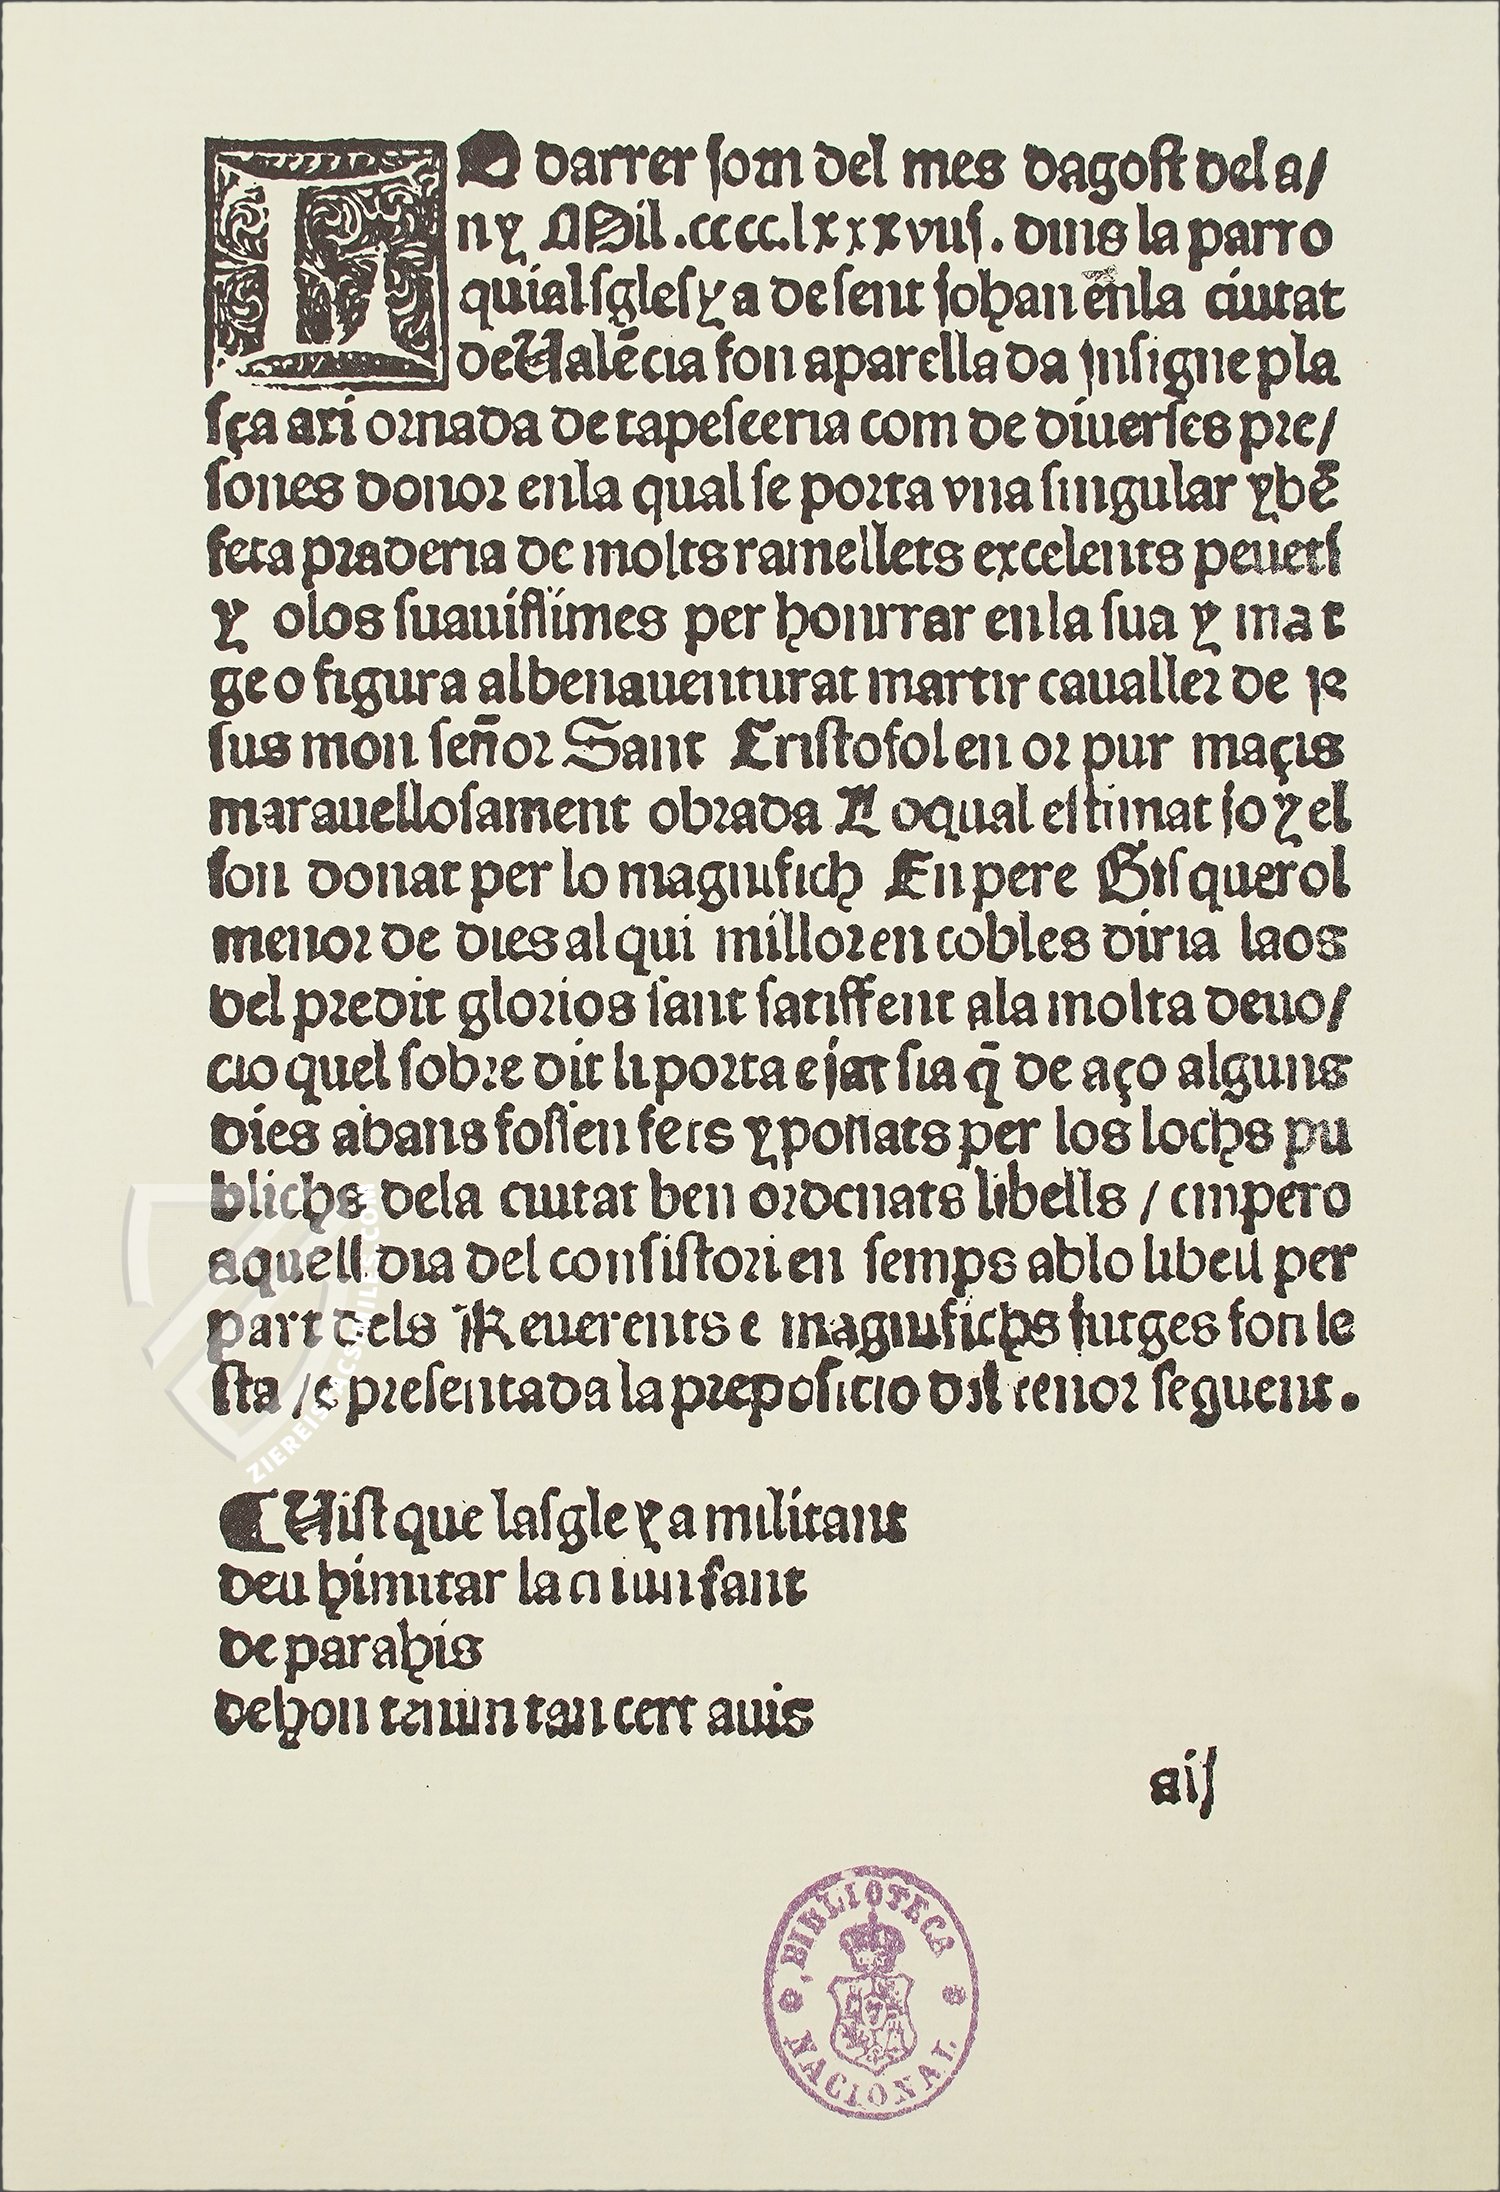 LO darrer jorn del mes dagost del a/
ny Mil .cccc.lxxxviij. dins la parro
quial sglesya de sent johan en la ciutat
de Ualēcia fon aparellada insigne pla
sça axi ornada de tapeseeria com de diuerses pre/
sones donor en la qual se porta vna singular y bē
feta praderia de molts ramellets excelents peueti
y olos suauissimes per honrrar en la sua ymat
ge o figura al benauenturat martir caualler de je
sus mon señor Sant Cristofol en or pur maçis
marauellosament obrada Lo qual estimat joyel
fon donat per lo magnifich En pere Gisquerol
menor de dies al qui millor en cobles diria laos
del predit glorios sant satisffent ala molta deuo/
cio quel sobre dit li porta e jat sia q̄ de aço alguns
dies abans fossen fets y posats per los lochs pu
blichs dela ciutat ben ordenats libells / empero
aquell dia del consistori en semps ab lo libell per
part dels Reuerents e magnifichs jutges fon le
sta / e presentada la preposicio del tenor seguent.
Uist que lasgleya militant
deu himitar la triunfant
de parahis
de hon tenim tan cert auis
aij
BIBLIOTECA NACIONAL
ZIEREIS FACSIMILES.COM